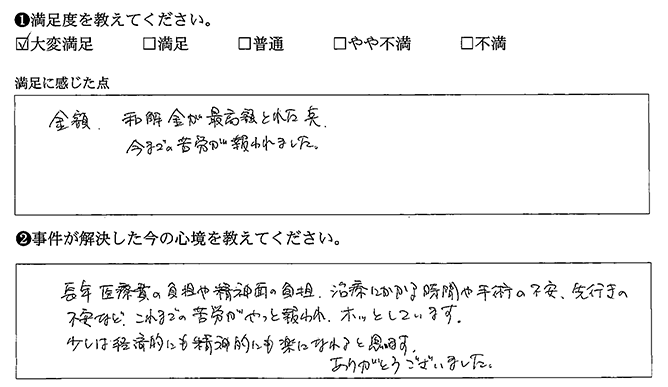 ❶満足度を教えてください。
☑大変満足 □満足 □普通 □やや不満 □不満
満足に感じた点
金額、和解金が最高額とれた点、
今までの苦労が報われました。
❷事件が解決した今の心境を教えてください。
長年医療費の負担や精神面の負担、治療にかかる時間や手術の不安、先行きの
不安など、これまでの苦労がやっと報われ、ホッとしています。
少しは経済的にも精神的にも楽になれると思います。
ありがとうございました。